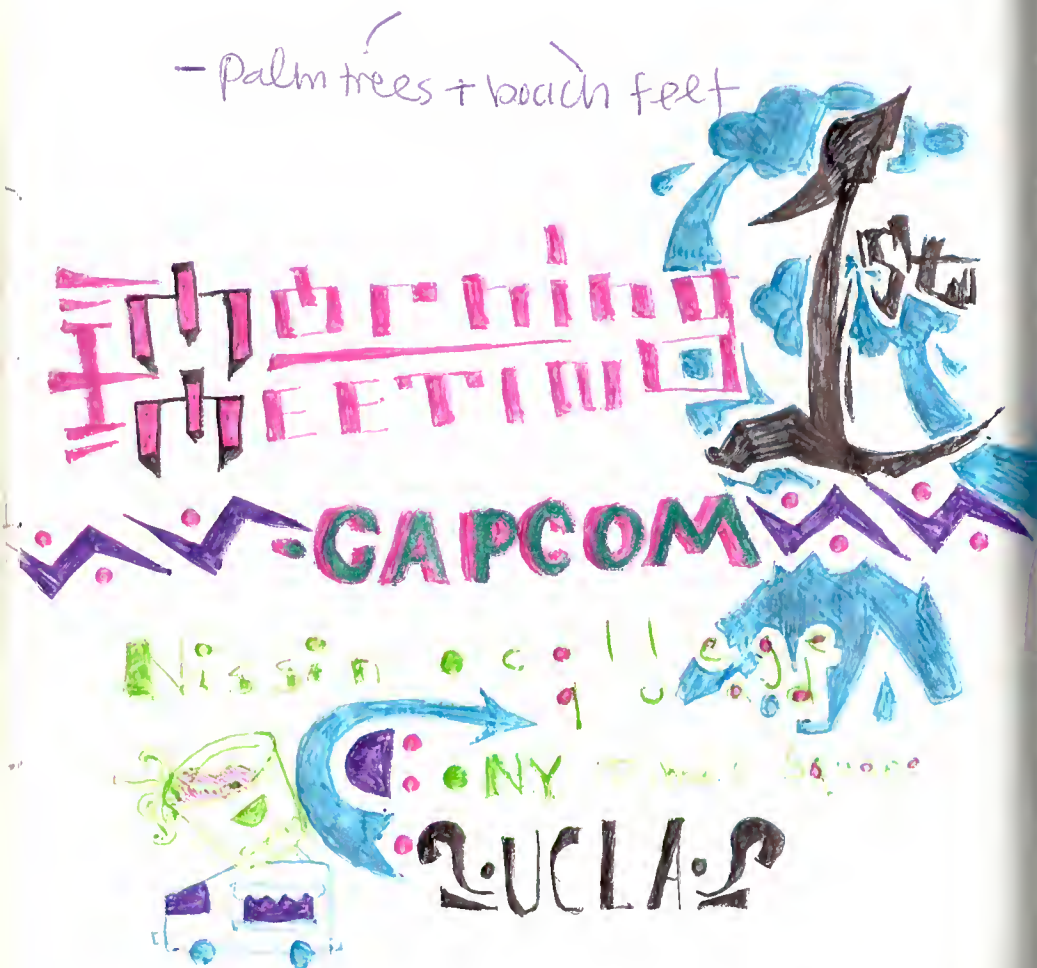 - palm trees + beach feet
Morning
MEETING
CAPCOM
Nissin college
NY Square
UCLA